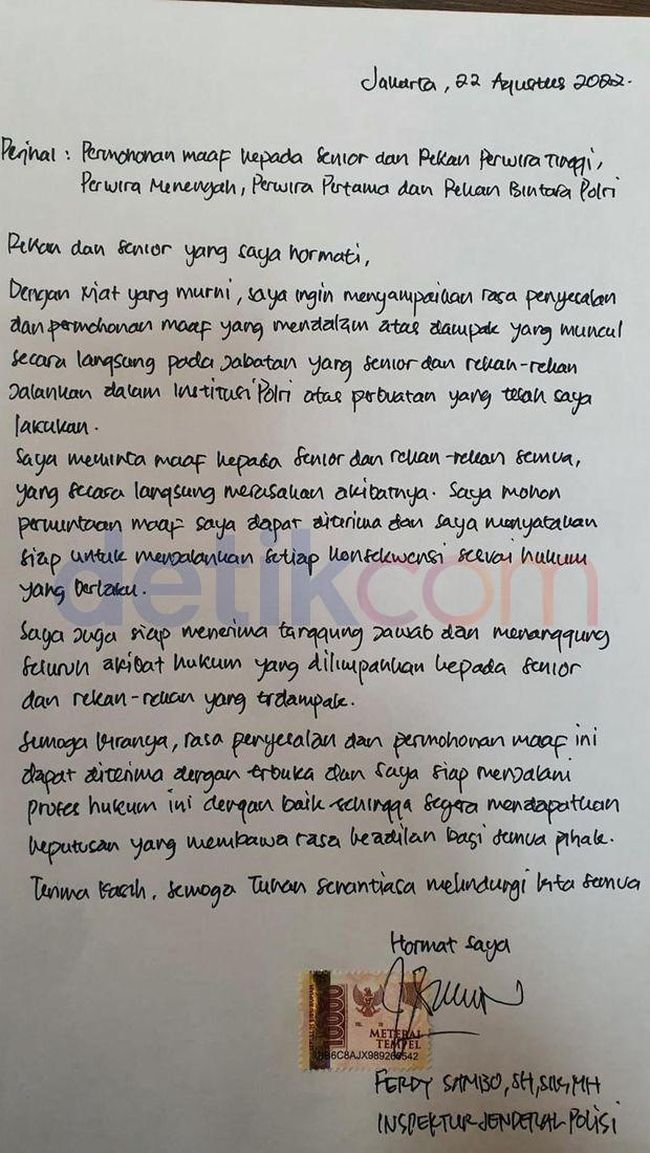 Jakarta, 22 Agustus 2022.
Perihal : Permohonan maaf kepada Senior dan Rekan Perwira Tinggi,
Perwira Menengah, Perwira Pertama dan Rekan Bintara Polri
Rekan dan Senior yang saya hormati,
Dengan niat yang murni, saya ingin menyampaikan rasa penyesalan
dan permohonan maaf yang mendalam atas dampak yang muncul
secara langsung pada Jabatan yang senior dan rekan-rekan
Jalankan dalam Institusi Polri atas perbuatan yang telah saya
lakukan.
Saya meminta maaf kepada Senior dan rekan-rekan semua,
yang secara langsung merasakan akibatnya. Saya mohon
permintaan maaf saya dapat diterima dan saya menyatakan
siap untuk menjalankan setiap konsekwensi sesuai hukum
yang berlaku.
detikcom
Saya Juga siap menerima tanggung Jawab dan menanggung
seluruh akibat hukum yang dilimpahkan kepada senior
dan rekan-rekan yang terdampak.
Semoga kiranya, rasa penyesalan dan permohonan maaf ini
dapat diterima dengan terbuka dan saya siap menjalani
proses hukum ini dengan baik sehingga segera mendapatkan
keputusan yang membawa rasa keadilan bagi semua pihak.
Terima kasih, semoga Tuhan senantiasa melindungi kita semua
Hormat Saya
10000
METERAI
TEMPEL
FERDY SAMBO, SH, SIK, MH
INSPEKTUR JENDERAL POLISI